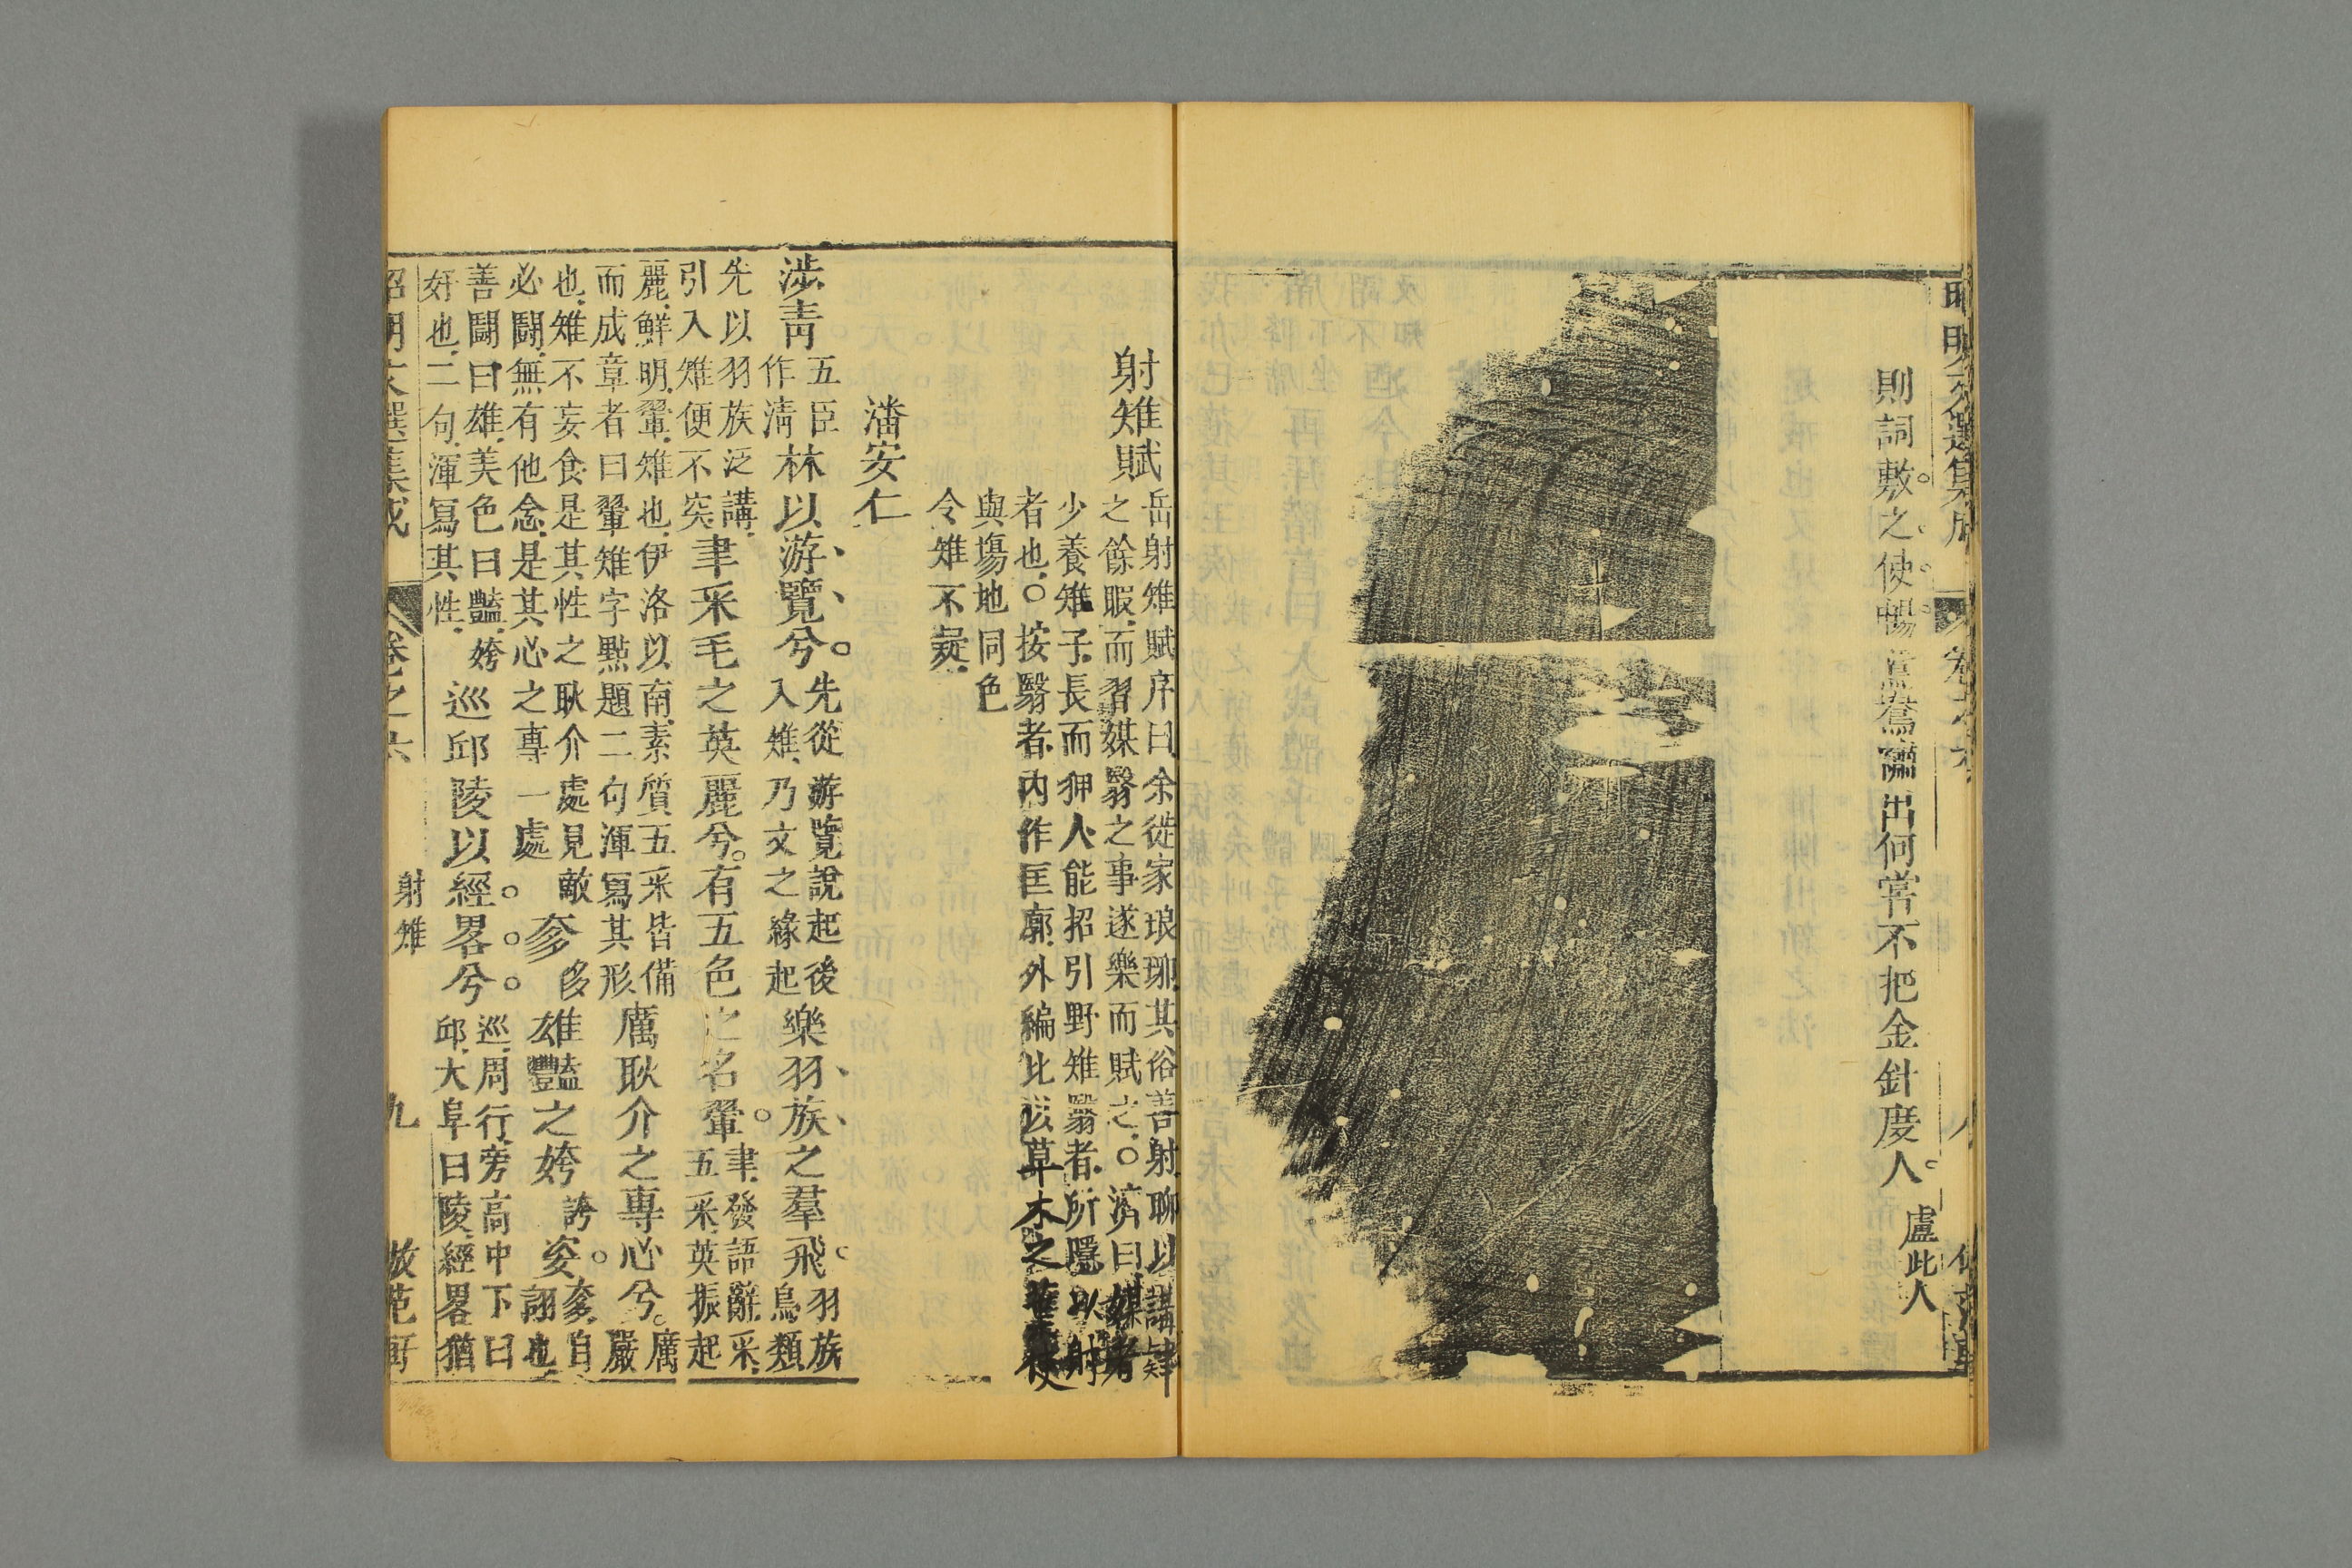 昭明文選集成
卷之六
八
則詞敷之使暢鴦鴦繡出何嘗不把金針度人
盧此人
射雉賦
岳射雉賦序曰余徙家琅琊其俗善射聊以講肄
之餘暇而習媒翳之事遂樂而賦之○濟曰媒者
少養雉子長而狎人能招引野雉翳者所隱以射
者也○按翳者內作匡廓外編比
草木之
與塲地同色
令雉不疑
潘安仁
涉青
五臣
作清
林以游覽兮
先從游覽說起後
入雉乃文之緣起
樂羽族之羣飛
羽族
鳥類
先以羽族泛講
引入雉便不突
聿采毛之英麗兮有五色之名翬
聿發語辭采
五采英振起
麗鮮明翬雉也伊洛以南素質五采皆備
而成章者曰翬雉字點題二句渾寫其形
厲耿介之專心兮
厲
嚴
也雉不妄食是其性之耿介處見敵
必鬬無有他念是其心之專一處
奓
侈
雄豔之姱
誇
姿
奓自
詡也
善鬬曰雄美色曰豔姱
好也二句渾寫其性
巡邱陵以經畧兮
巡周行旁高中下曰
邱大阜曰陵經畧猶
昭明文選集成
卷之六
射雉
九
倣范軒